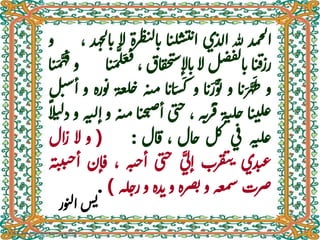 الحمد لله الذي انتشلنا بالنظرة لا بالجهد ، و
رزقنا بالفضل لا بالإستحقاق ، فَعَلَّمَنا و فَهَّمَنا
و طَهَّرَنا و نَوَّرَنا و كَسَانا منه خلعة نوره و أسبل
علينا حلية قربه ، حتى أصبحنا منه و إليه و دليلاً
عليه في كل حال ، قال : ( و لا زال
عبدي يتقرب إليَّ حتى أحبه ، فإن أحببته
صرت سمعه و بصره و يده و رجله ) .
يس النور